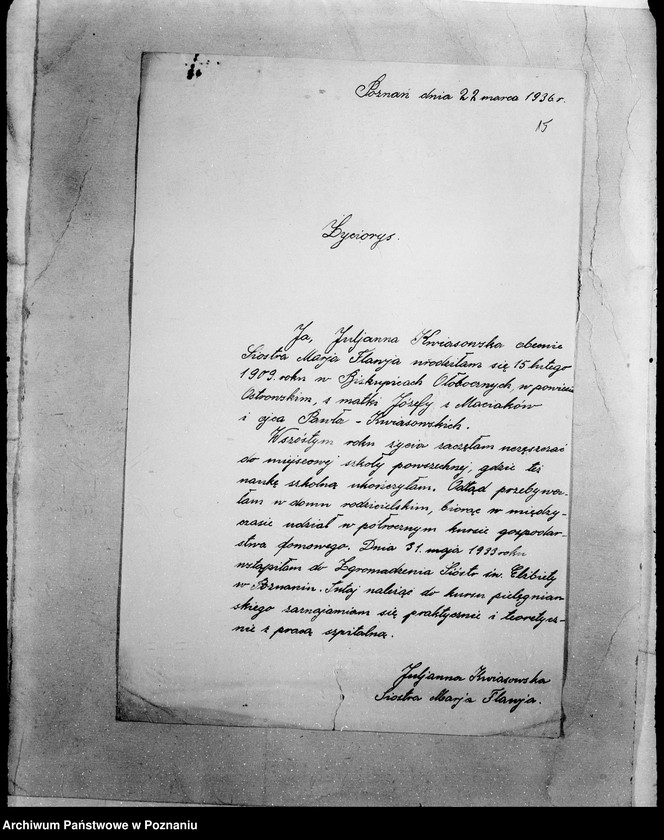 Poznań dnia 22 marca 1936 r.
15
Życiorys.
Ja, Juljanna Kwiasowska obecnie
Siostra Marja Flawja urodziłam się 15 lutego
1909. roku w Biskupicach Ołobocznych, w powiecie
Ostrowskim, z matki Józefy z Maciaków
i ojca Pawła - Kwiasowskich.
W szóstym roku życia zaczęłam uczęszczać
do miejscowej szkoły powszechnej, gdzie też
naukę szkolną ukończyłam. Odtąd przebywa-
łam w domu rodzicielskim, biorąc w między-
czasie udział w półrocznym kursie gospodar-
stwa domowego. Dnia 31. maja 1933 roku
wstąpiłam do Zgromadzenia Sióstr św. Elżbiety
w Poznaniu. Tutaj należąc do kursu pielęgniar-
skiego zaznajamiam się praktycznie i teoretycz-
nie z pracą szpitalną.
Juljanna Kwiasowska
Siostra Marja Flawja.
Archiwum Państwowe w Poznaniu